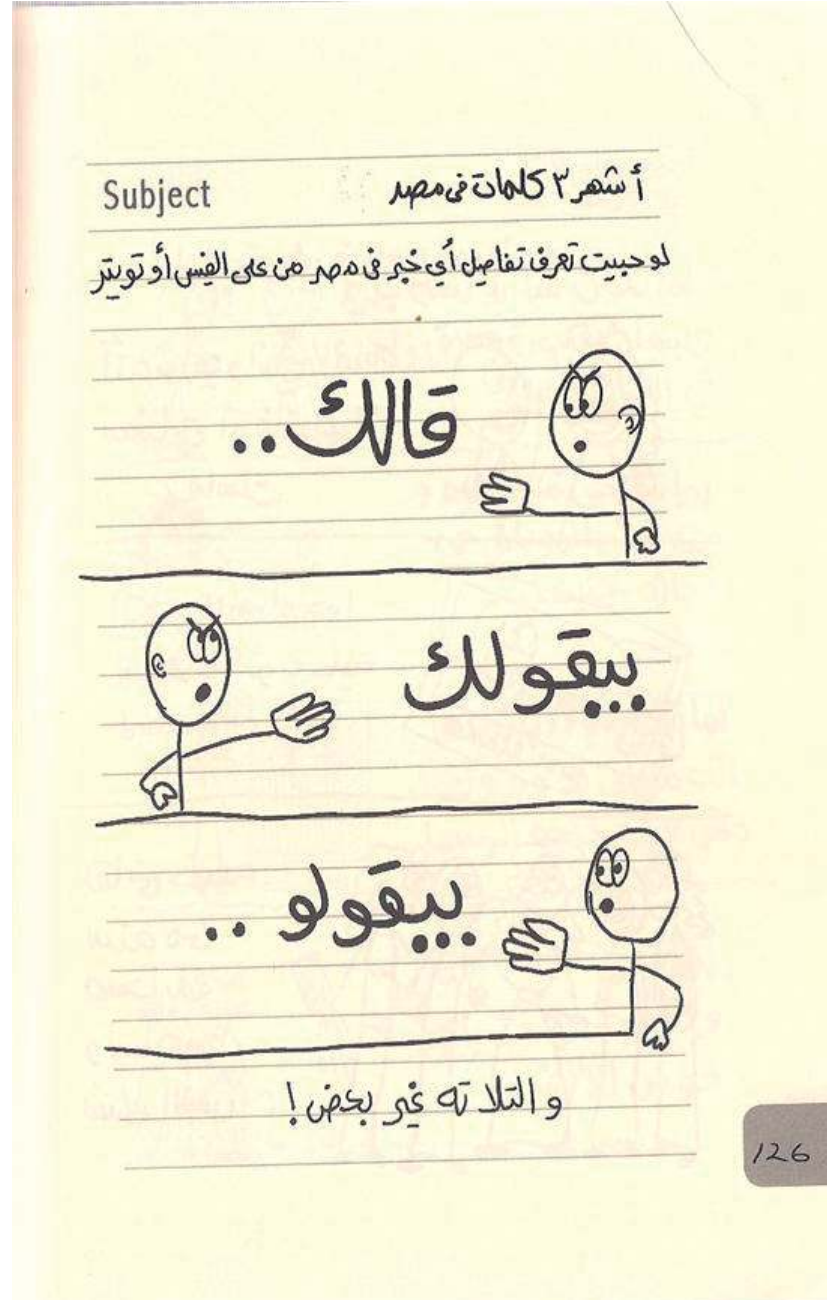 Subject أشهر ٣ كلمات فى مصر
لو حبيت تعرف تفاصيل أي خبر فى مصر من على الفيس أو تويتر
قالك..
بيقولك
بيقولو ..
والتلاته غير بعض!
126